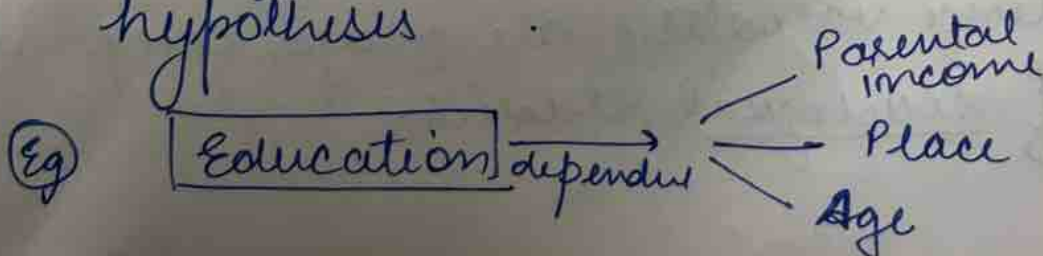 hypothesis
Eg Education depends
Parental
income
Place
Age